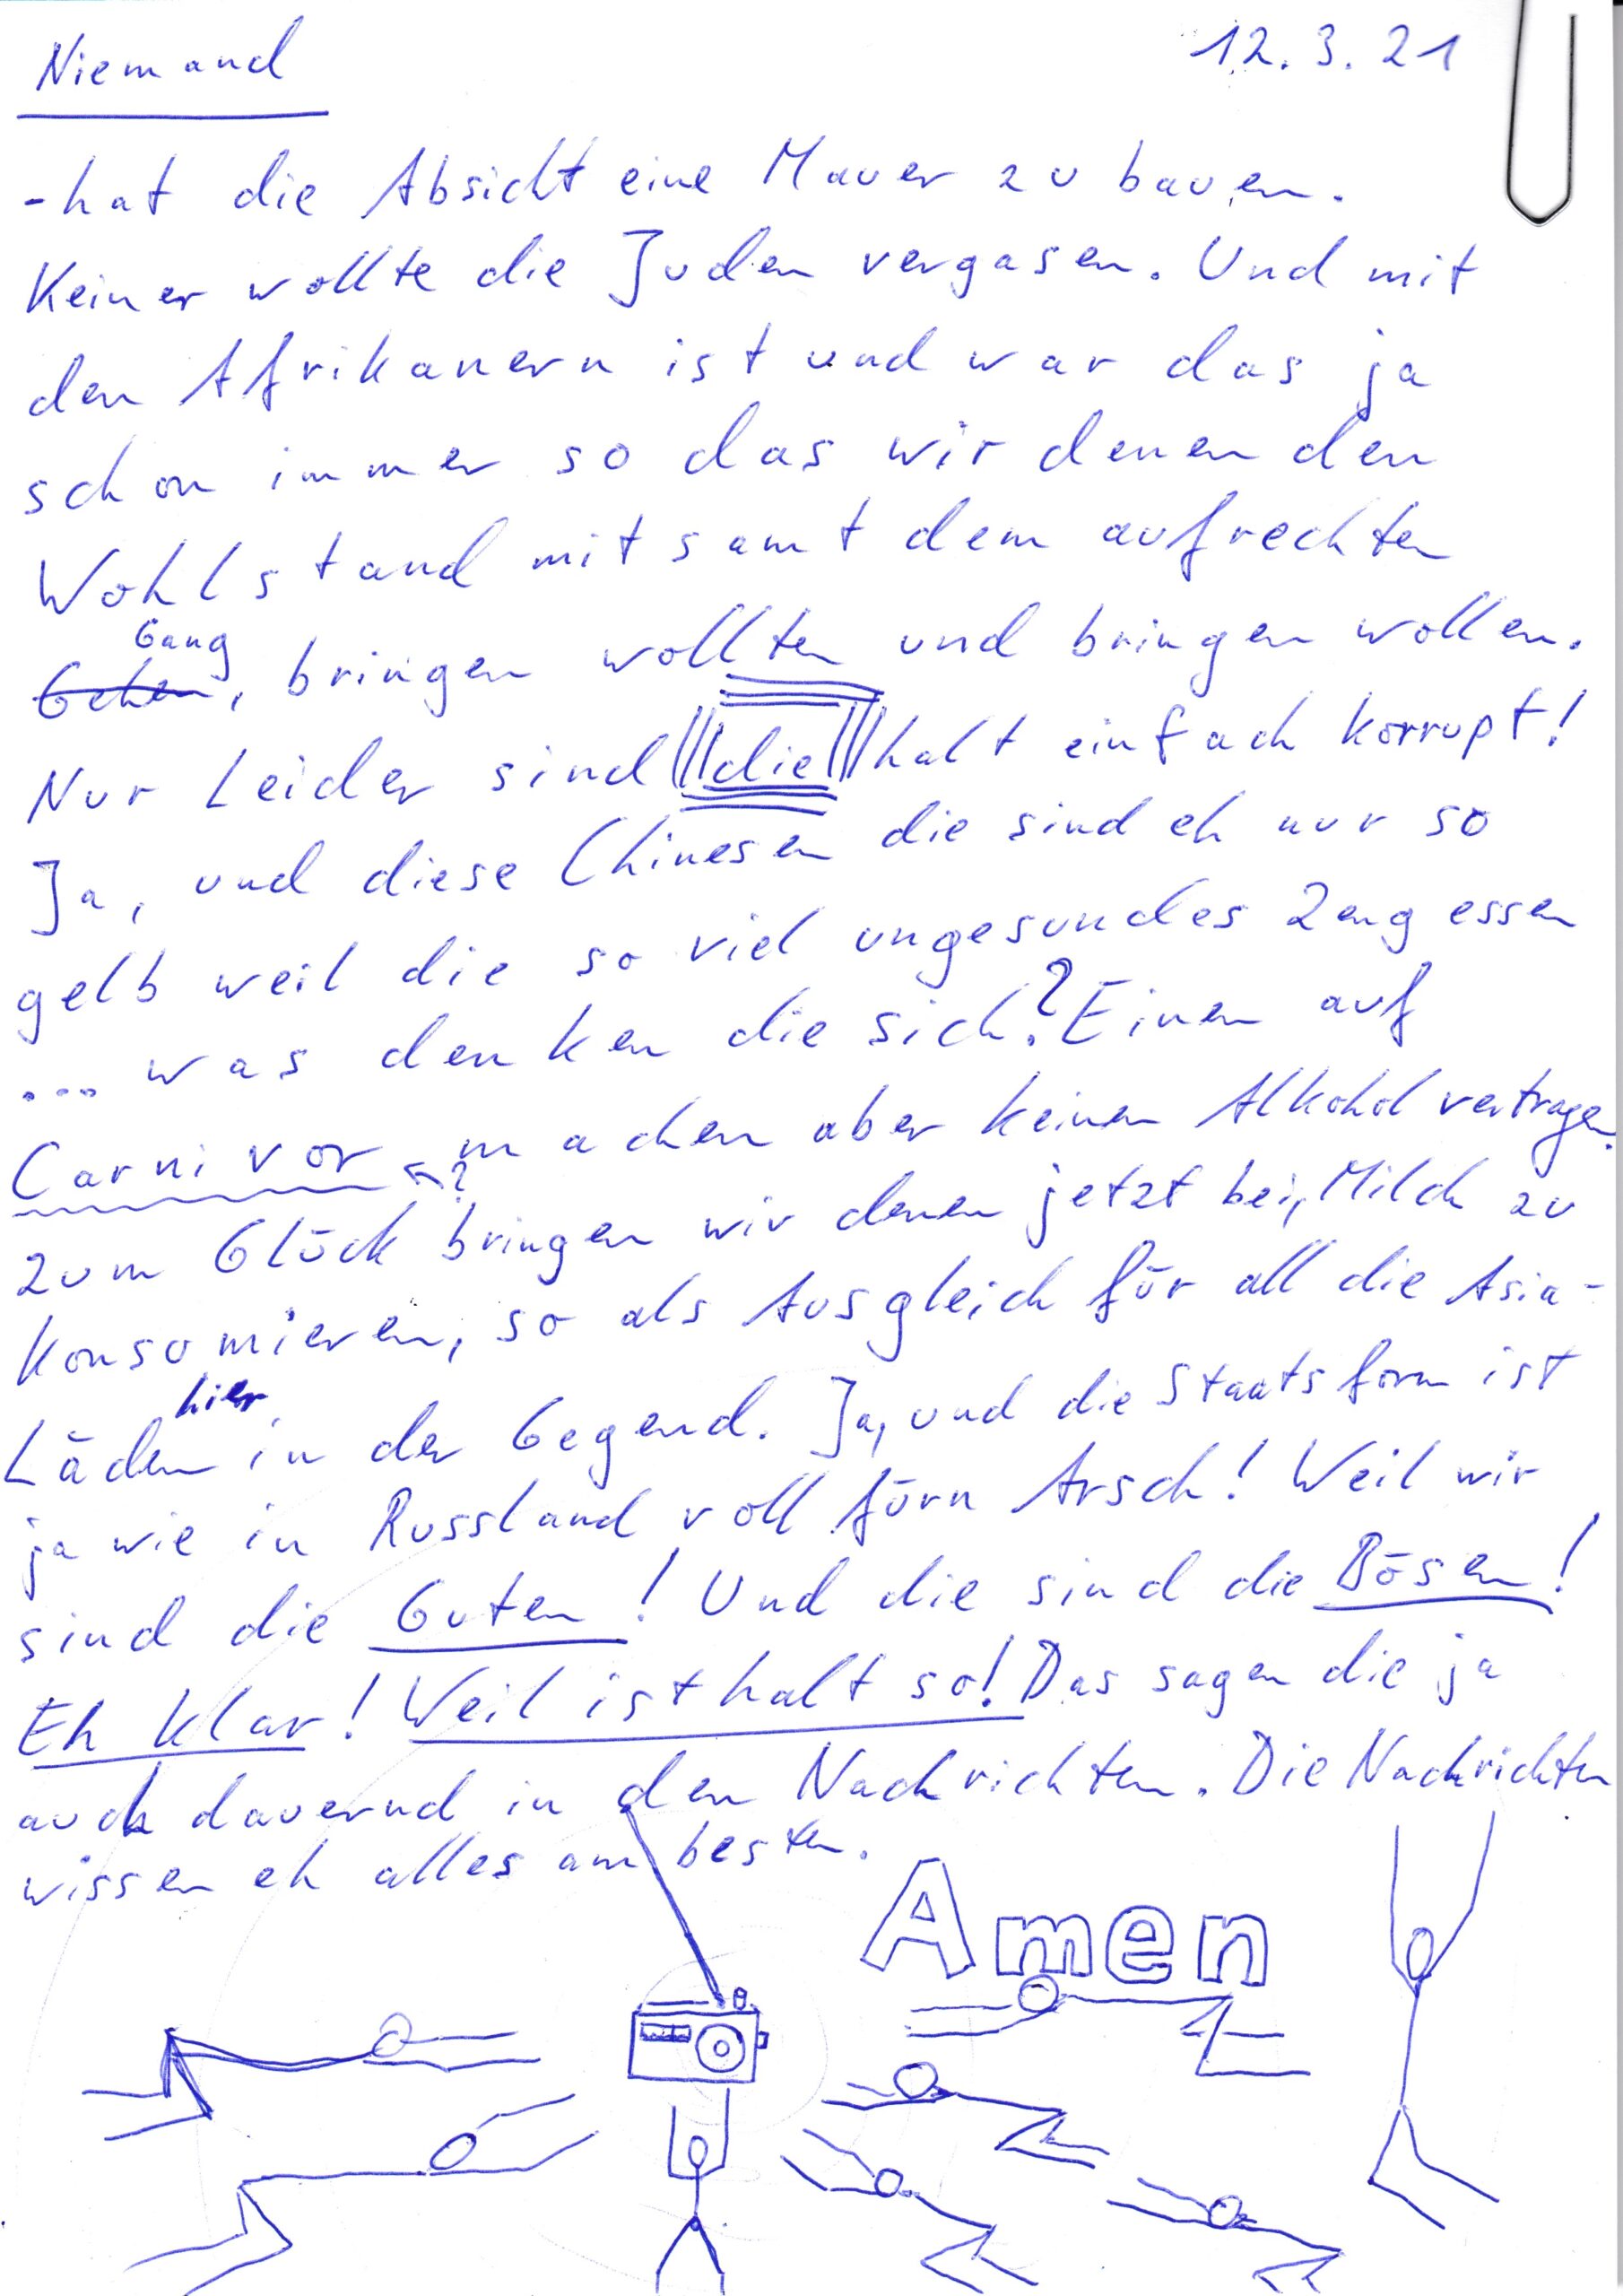 Niemand 12.3.21
- hat die Absicht eine Mauer zu bauen.
Keiner wollte die Juden vergasen. Und mit
den Afrikanern ist und war das ja
schon immer so das wir denen den
Wohlstand mitsamt dem aufrechten
Gang
Gehen, bringen wollten und bringen wollen.
Nur Leider sind die halt einfach korrupt!
Ja, und diese Chinesen die sind eh nur so
gelb weil die so viel ungesundes Zeug essen
... was denken die sich? Einen auf
Carnivor ←? machen aber keinen Alkohol vertragen.
Zum Glück bringen wir denen jetzt bei, Milch zu
konsumieren, so als Ausgleich für all die Asia-
hier
Läden in der Gegend. Ja, und die Staatsform ist
ja wie in Russland voll fürn Arsch! Weil wir
sind die Guten! Und die sind die Bösen!
Eh klar! Weil ist halt so! Das sagen die ja
auch dauernd in den Nachrichten. Die Nachrichten
wissen eh alles am besten.
Amen